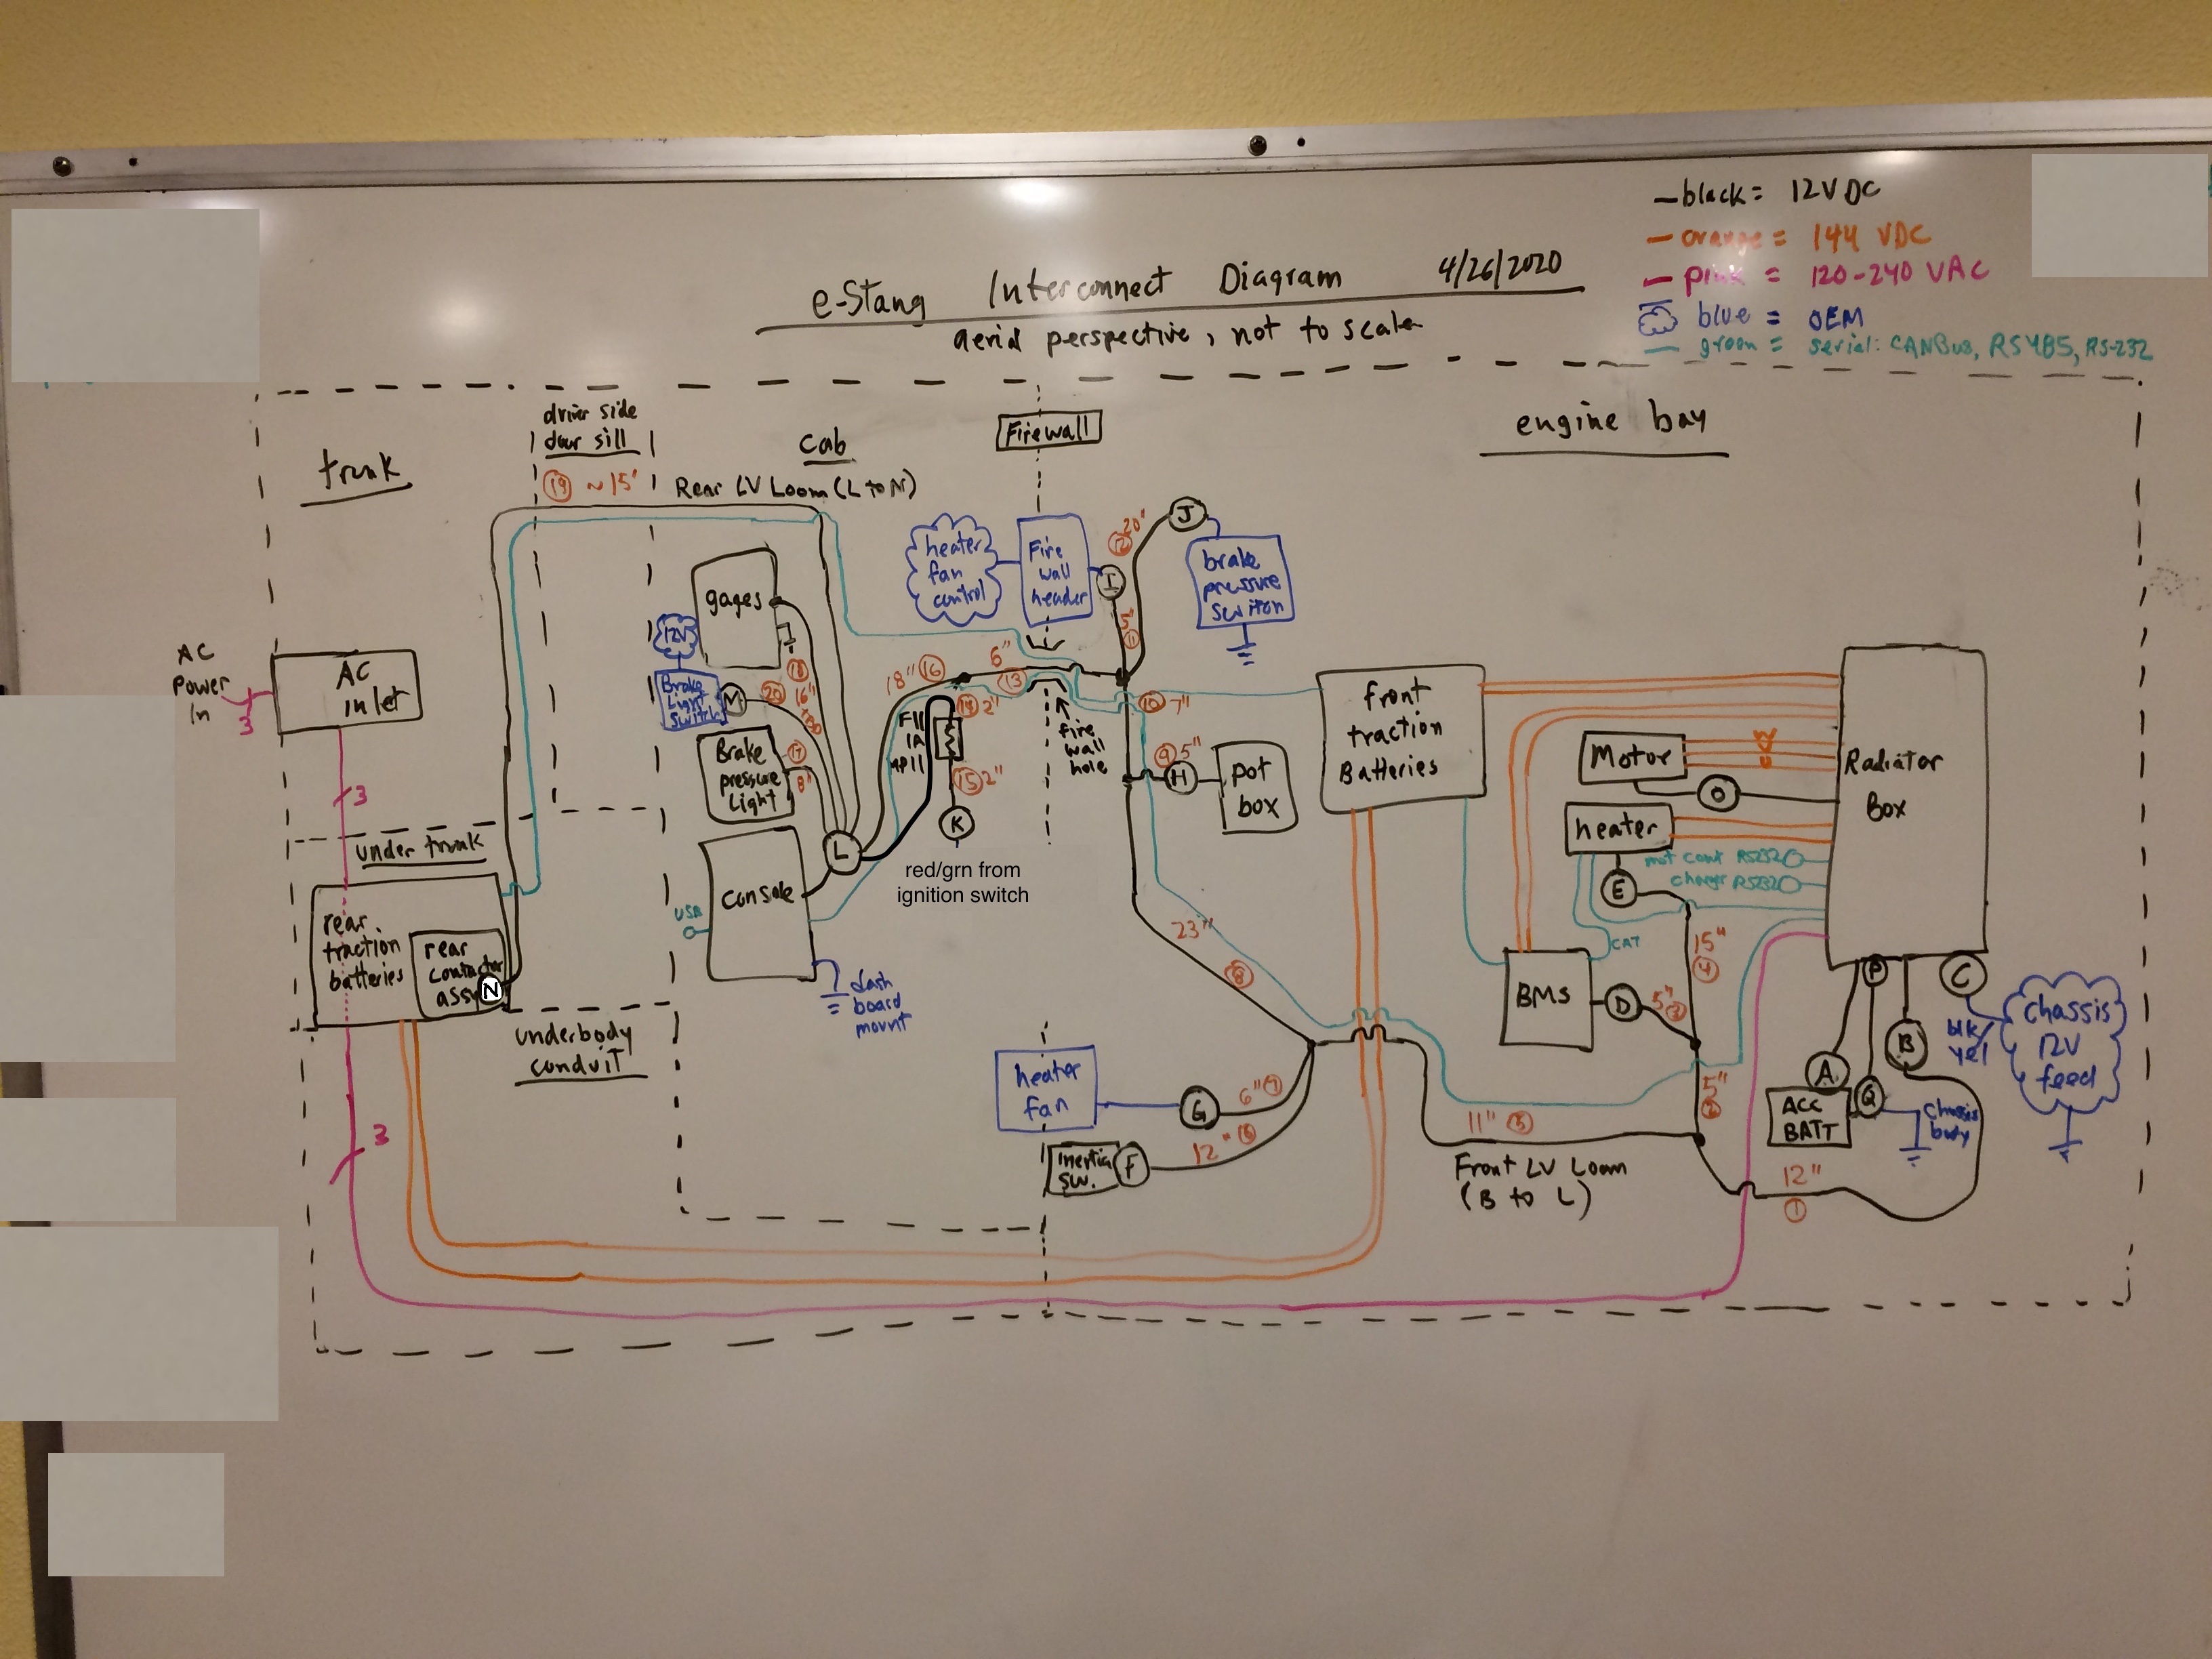 black = 12V DC
orange = 144 VDC
pink = 120-240 VAC
blue = OEM
green = serial: CANBus, RS485, RS-232
e-Stang Interconnect Diagram 4/26/2020
aerial perspective, not to scale
trunk
driver side
door sill
19 ~15'
cab
Rear LV Loom (L to N)
Firewall
engine bay
heater
fan
control
Fire
wall
header
I
J
12 20"
5"
11
brake
pressure
switch
gages
12V
Brake
Light
Switch
M
20
18
16"
Brake
pressure
Light
17
8"
18" 16
6"
13
14 2"
F11
1A
15 2"
K
red/grn from
ignition switch
L
fire
wall
hole
10 7"
9 5"
H
pot
box
front
traction
Batteries
Motor
O
Radiator
Box
heater
E
mot cont RS232
charger RS232
CAT
AC
Power
In
3
AC
inlet
3
under trunk
rear
traction
batteries
rear
contactor
assy
N
underbody
conduit
3
console
USB
dash
board
mount
23"
8
BMS
D
5" 3
15"
4
5"
2
P
C
A
B
Q
ACC
BATT
chassis
body
blk
yel
chassis
12V
feed
heater
fan
G
6" 7
Inertia
Sw.
F
12" 6
11" 5
Front LV Loom
(B to L)
12"
1